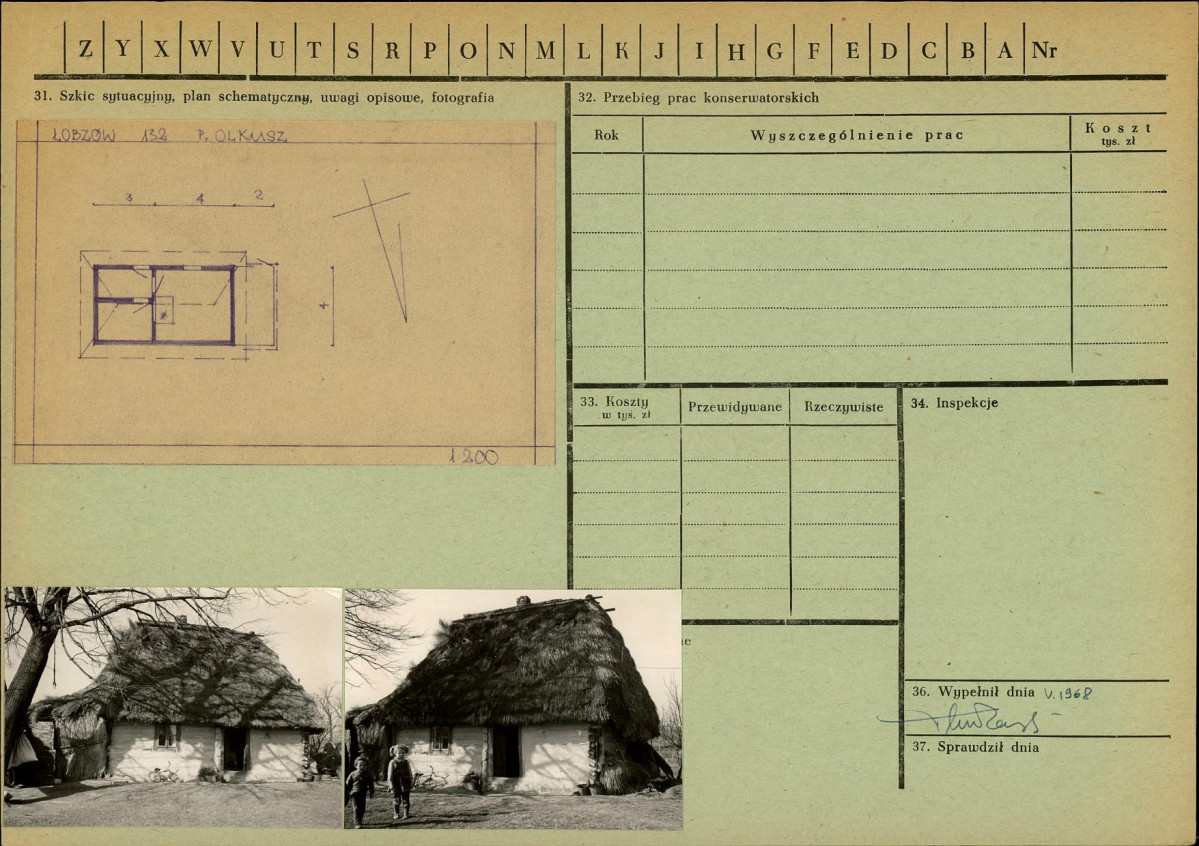 Z Y X W V U T S R P O N M L K J I H G F E D C B A Nr
31. Szkic sytuacyjny, plan schematyczny, uwagi opisowe, fotografia
ŁOBZÓW 132 P. OLKUSZ
3 4 2
4
1 200
32. Przebieg prac konserwatorskich
Rok Wyszczególnienie prac Koszt
tys. zł
33. Koszty Przewidywane Rzeczywiste
w tys. zł
34. Inspekcje
36. Wypełnił dnia V.1968
37. Sprawdził dnia